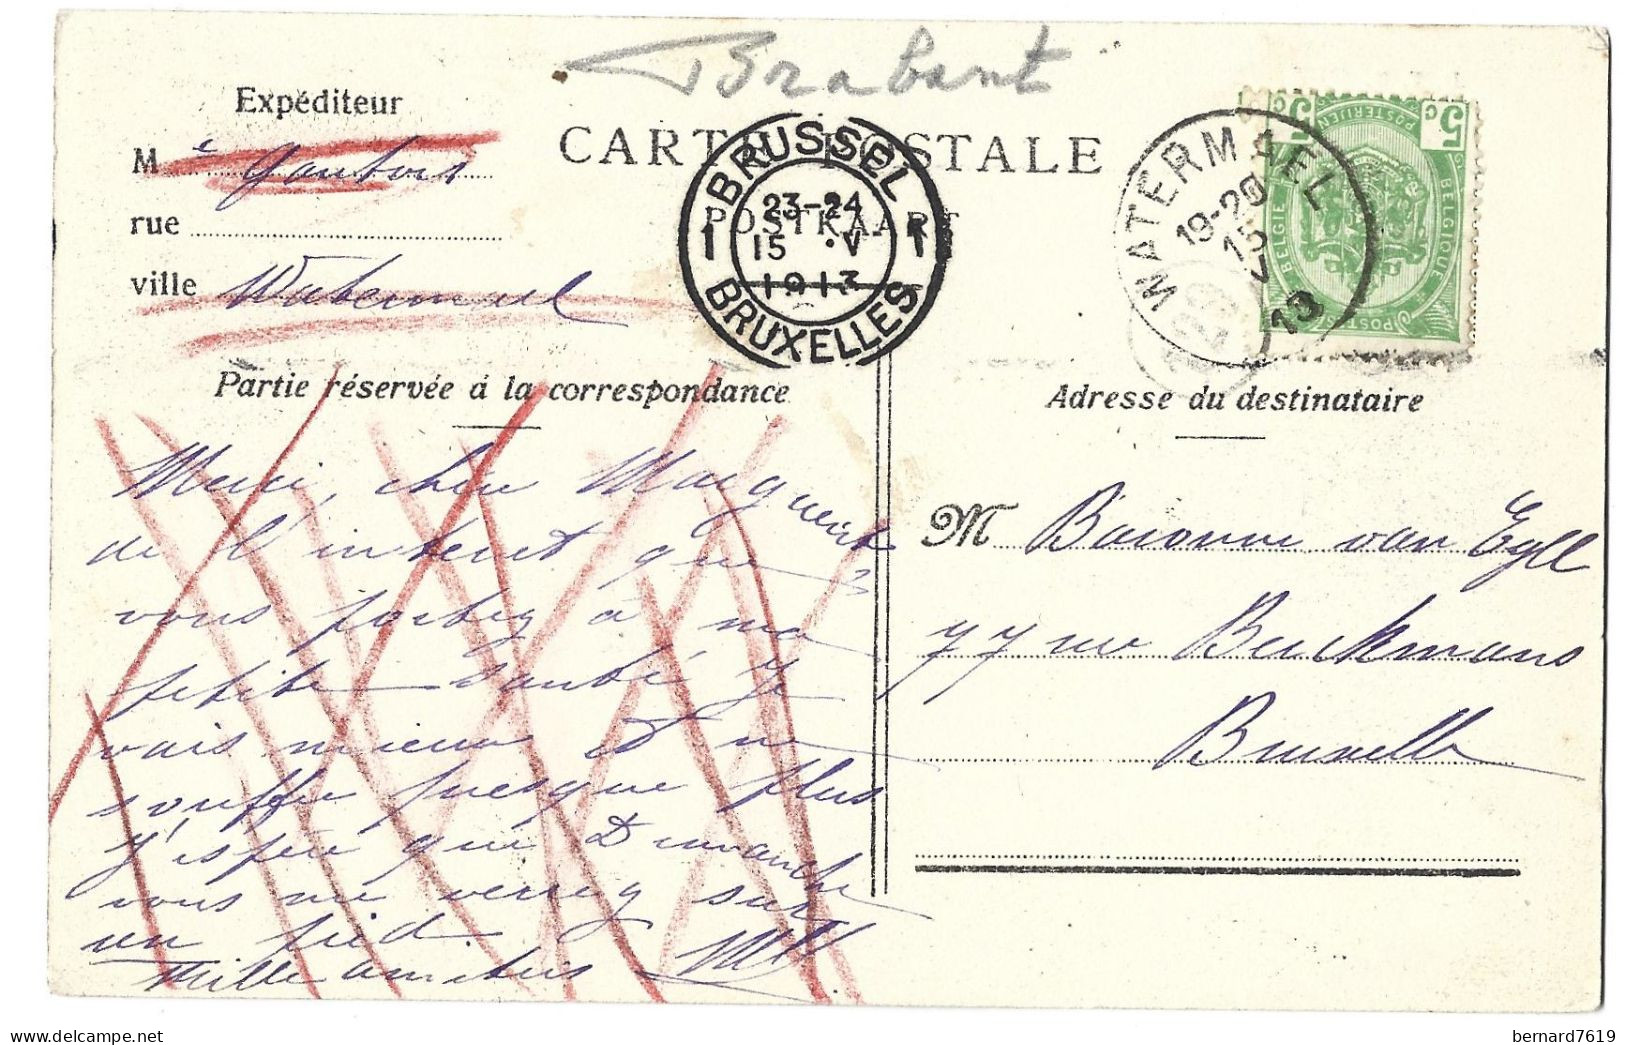 Brabant
Expéditeur
CARTE POSTALE
POSTKAART
Me Gaubois
rue
ville Watermael
BRUSSEL
23-24
1 15 .V 1
1913
BRUXELLES
WATERMAEL
19-20
15
V
13
5 c 5 c
POSTERIJEN
BELGIE BELGIQUE
POSTES
Partie réservée à la correspondance
Merci, chère Marguerite
de l'intérêt que
vous portez à ma
petite santé. Je
vais mieux et ne
souffre presque plus
J'espère que Dimanche
vous me verrez sur
un pied.
Mille amitiés
Adresse du destinataire
M Baronne van Eyll
77 rue Berckmans
Bruxelles
bernard7619